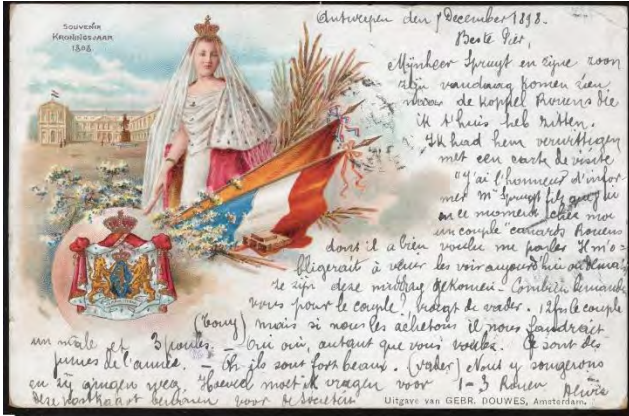 SOUVENIR
KRONINGSJAAR
1898
Antwerpen den 1 December 1898.
Beste Pier,
Mijnheer Spruyt en zijne zoon
zijn vandaag komen zien
naar de koppel Rouens die
ik t'huis heb zitten.
Ik had hem verwittigen
met een carte de visite
"j'ai l'honneur d'infor
mer Mr Spruyt fils que j'ai
en ce moment chez moi
un couple canards Rouens
dont il a bien voulu me parler. Il m'o-
bligerait à venir les voir aujourd'hui ou demain
ze zijn deze middag gekomen - Combien demandez
vous pour le couple? vraegt de vader. 12 frs le couple
(Tony) mais si nous les achetons il nous faudrait
un mâle et 3 poules. - Oui oui, autant que vous voulez. Ce sont des
jeunes de l'année. - Oh ils sont fort beaux. (vader) Nous y songerons
en zij gingen weg. Hoeveel moet ik vragen voor 1-3 Rouen
deze postkaart voor
Uitgave van GEBR. DOUWES, Amsterdam.